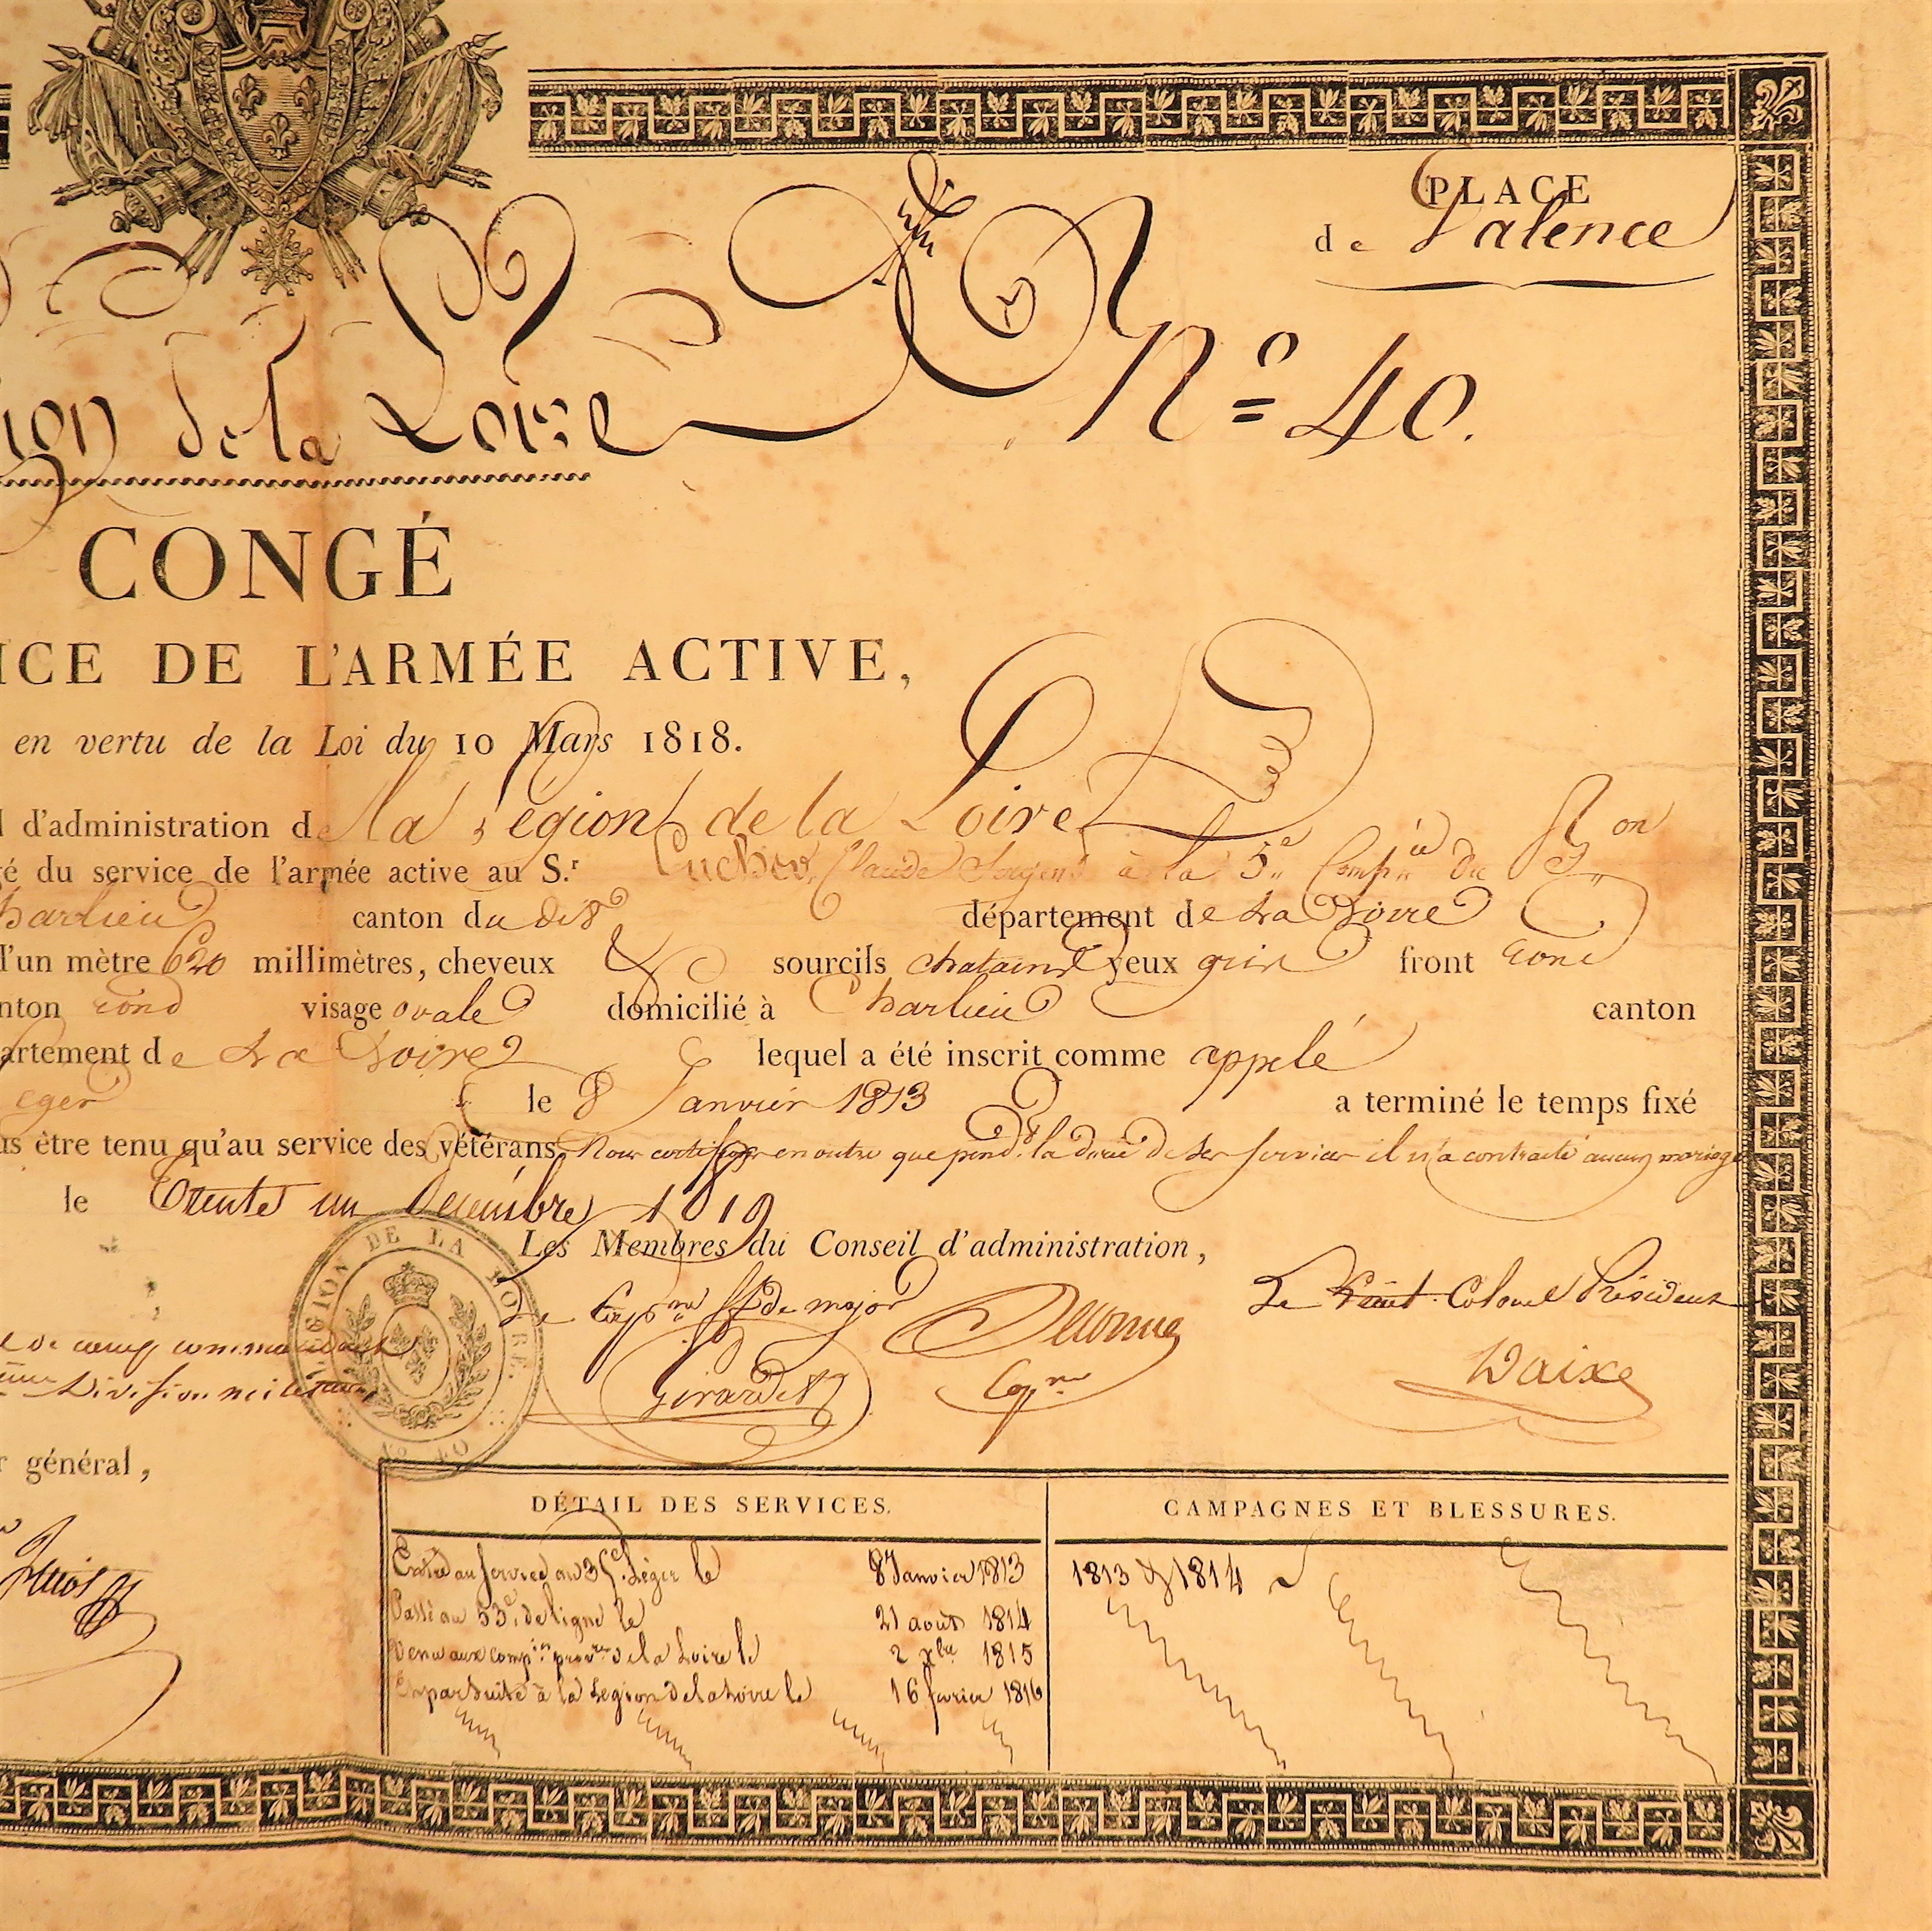 PLACE
de Valence
ion de la Loire
N.º 40.
CONGÉ
ICE DE L'ARMÉE ACTIVE,
en vertu de la Loi du 10 Mars 1818.
d'administration de la Légion de la Loire
é du service de l'armée active au S.r Claude Sergent à la 5.e Comp.ie du on
harlieu canton du dit département de La Loire
d'un mètre 620 millimètres, cheveux & sourcils chatains yeux gris front rond
nton rond visage ovale domicilié à Charlieu canton
artement de La Loire lequel a été inscrit comme appelé
eger le 8 Janvier 1813 a terminé le temps fixé
us être tenu qu'au service des vétérans. Nous certifions en outre que pend.t la durée de ses services il n'a contracté aucun mariage
le trente un Décembre 1819
Les Membres du Conseil d'administration,
Le Cap.ne ff de major
Le Lieut. Colonel Président
Girardet
Cap.ne
Daixe
LÉGION DE LA LOIRE.
de camp commandant
Division militaire
r général,
DÉTAIL DES SERVICES.
CAMPAGNES ET BLESSURES.
Entré au service au 35.e Léger le 8 Janvier 1813
1813 & 1814
Passé au 53.e de ligne le 21 août 1814
Venu aux comp.ies prov.res de la Loire le 2 xbre 1815
à la Légion de la Loire le 16 février 1816